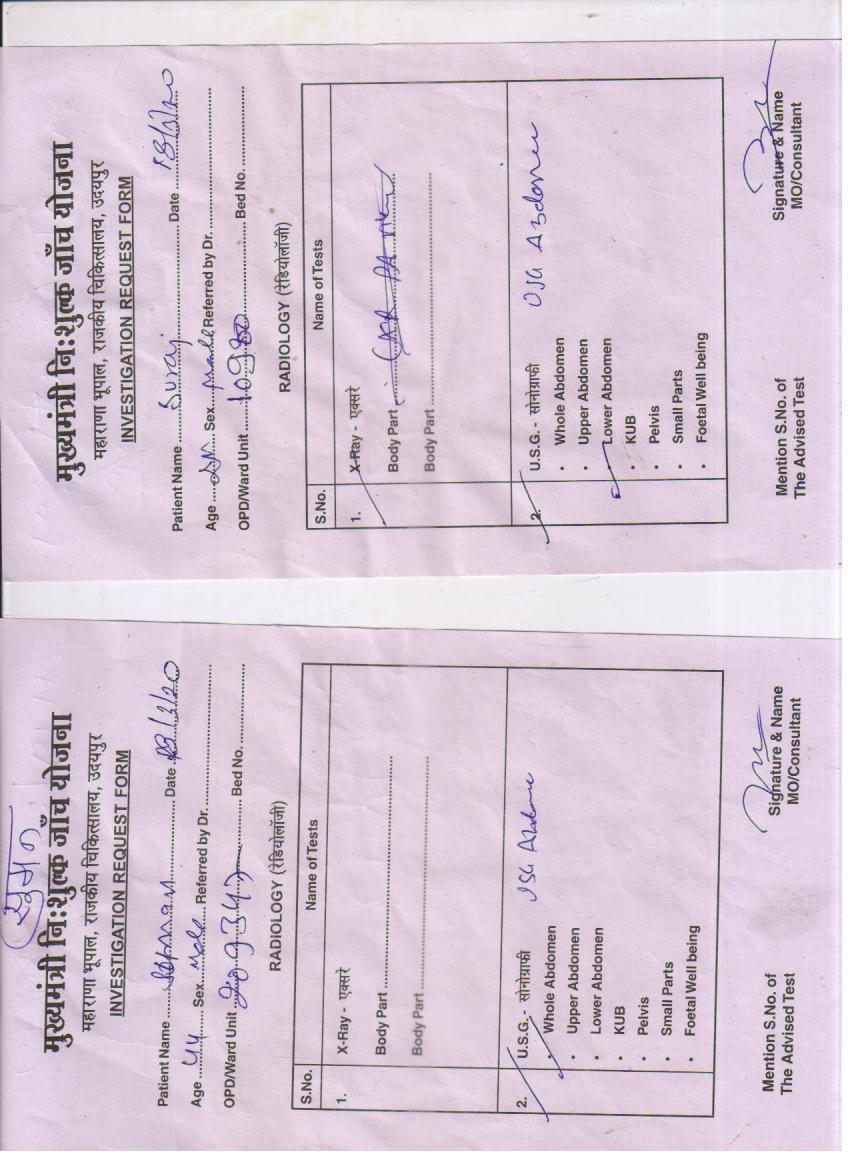 मुख्यमंत्री निःशुल्क जाँच योजना
महाराणा भूपाल, राजकीय चिकित्सालय, उदयपुर
INVESTIGATION REQUEST FORM
Patient Name Suraj Date
Age Sex male Referred by Dr.
OPD/Ward Unit 10980 Bed No.
RADIOLOGY (रेडियोलॉजी)
S.No. Name of Tests
1. X-Ray - एक्सरे
Body Part
Body Part
2. U.S.G. - सोनोग्राफी USG Abdomen
• Whole Abdomen
• Upper Abdomen
• Lower Abdomen
• KUB
• Pelvis
• Small Parts
• Foetal Well being
Mention S.No. of Signature & Name
The Advised Test MO/Consultant
सुमन
मुख्यमंत्री निःशुल्क जाँच योजना
महाराणा भूपाल, राजकीय चिकित्सालय, उदयपुर
INVESTIGATION REQUEST FORM
Patient Name Date
Age 44 Sex Male Referred by Dr.
OPD/Ward Unit Bed No.
RADIOLOGY (रेडियोलॉजी)
S.No. Name of Tests
1. X-Ray - एक्सरे
Body Part
Body Part
2. U.S.G. - सोनोग्राफी USG
• Whole Abdomen
• Upper Abdomen
• Lower Abdomen
• KUB
• Pelvis
• Small Parts
• Foetal Well being
Mention S.No. of Signature & Name
The Advised Test MO/Consultant